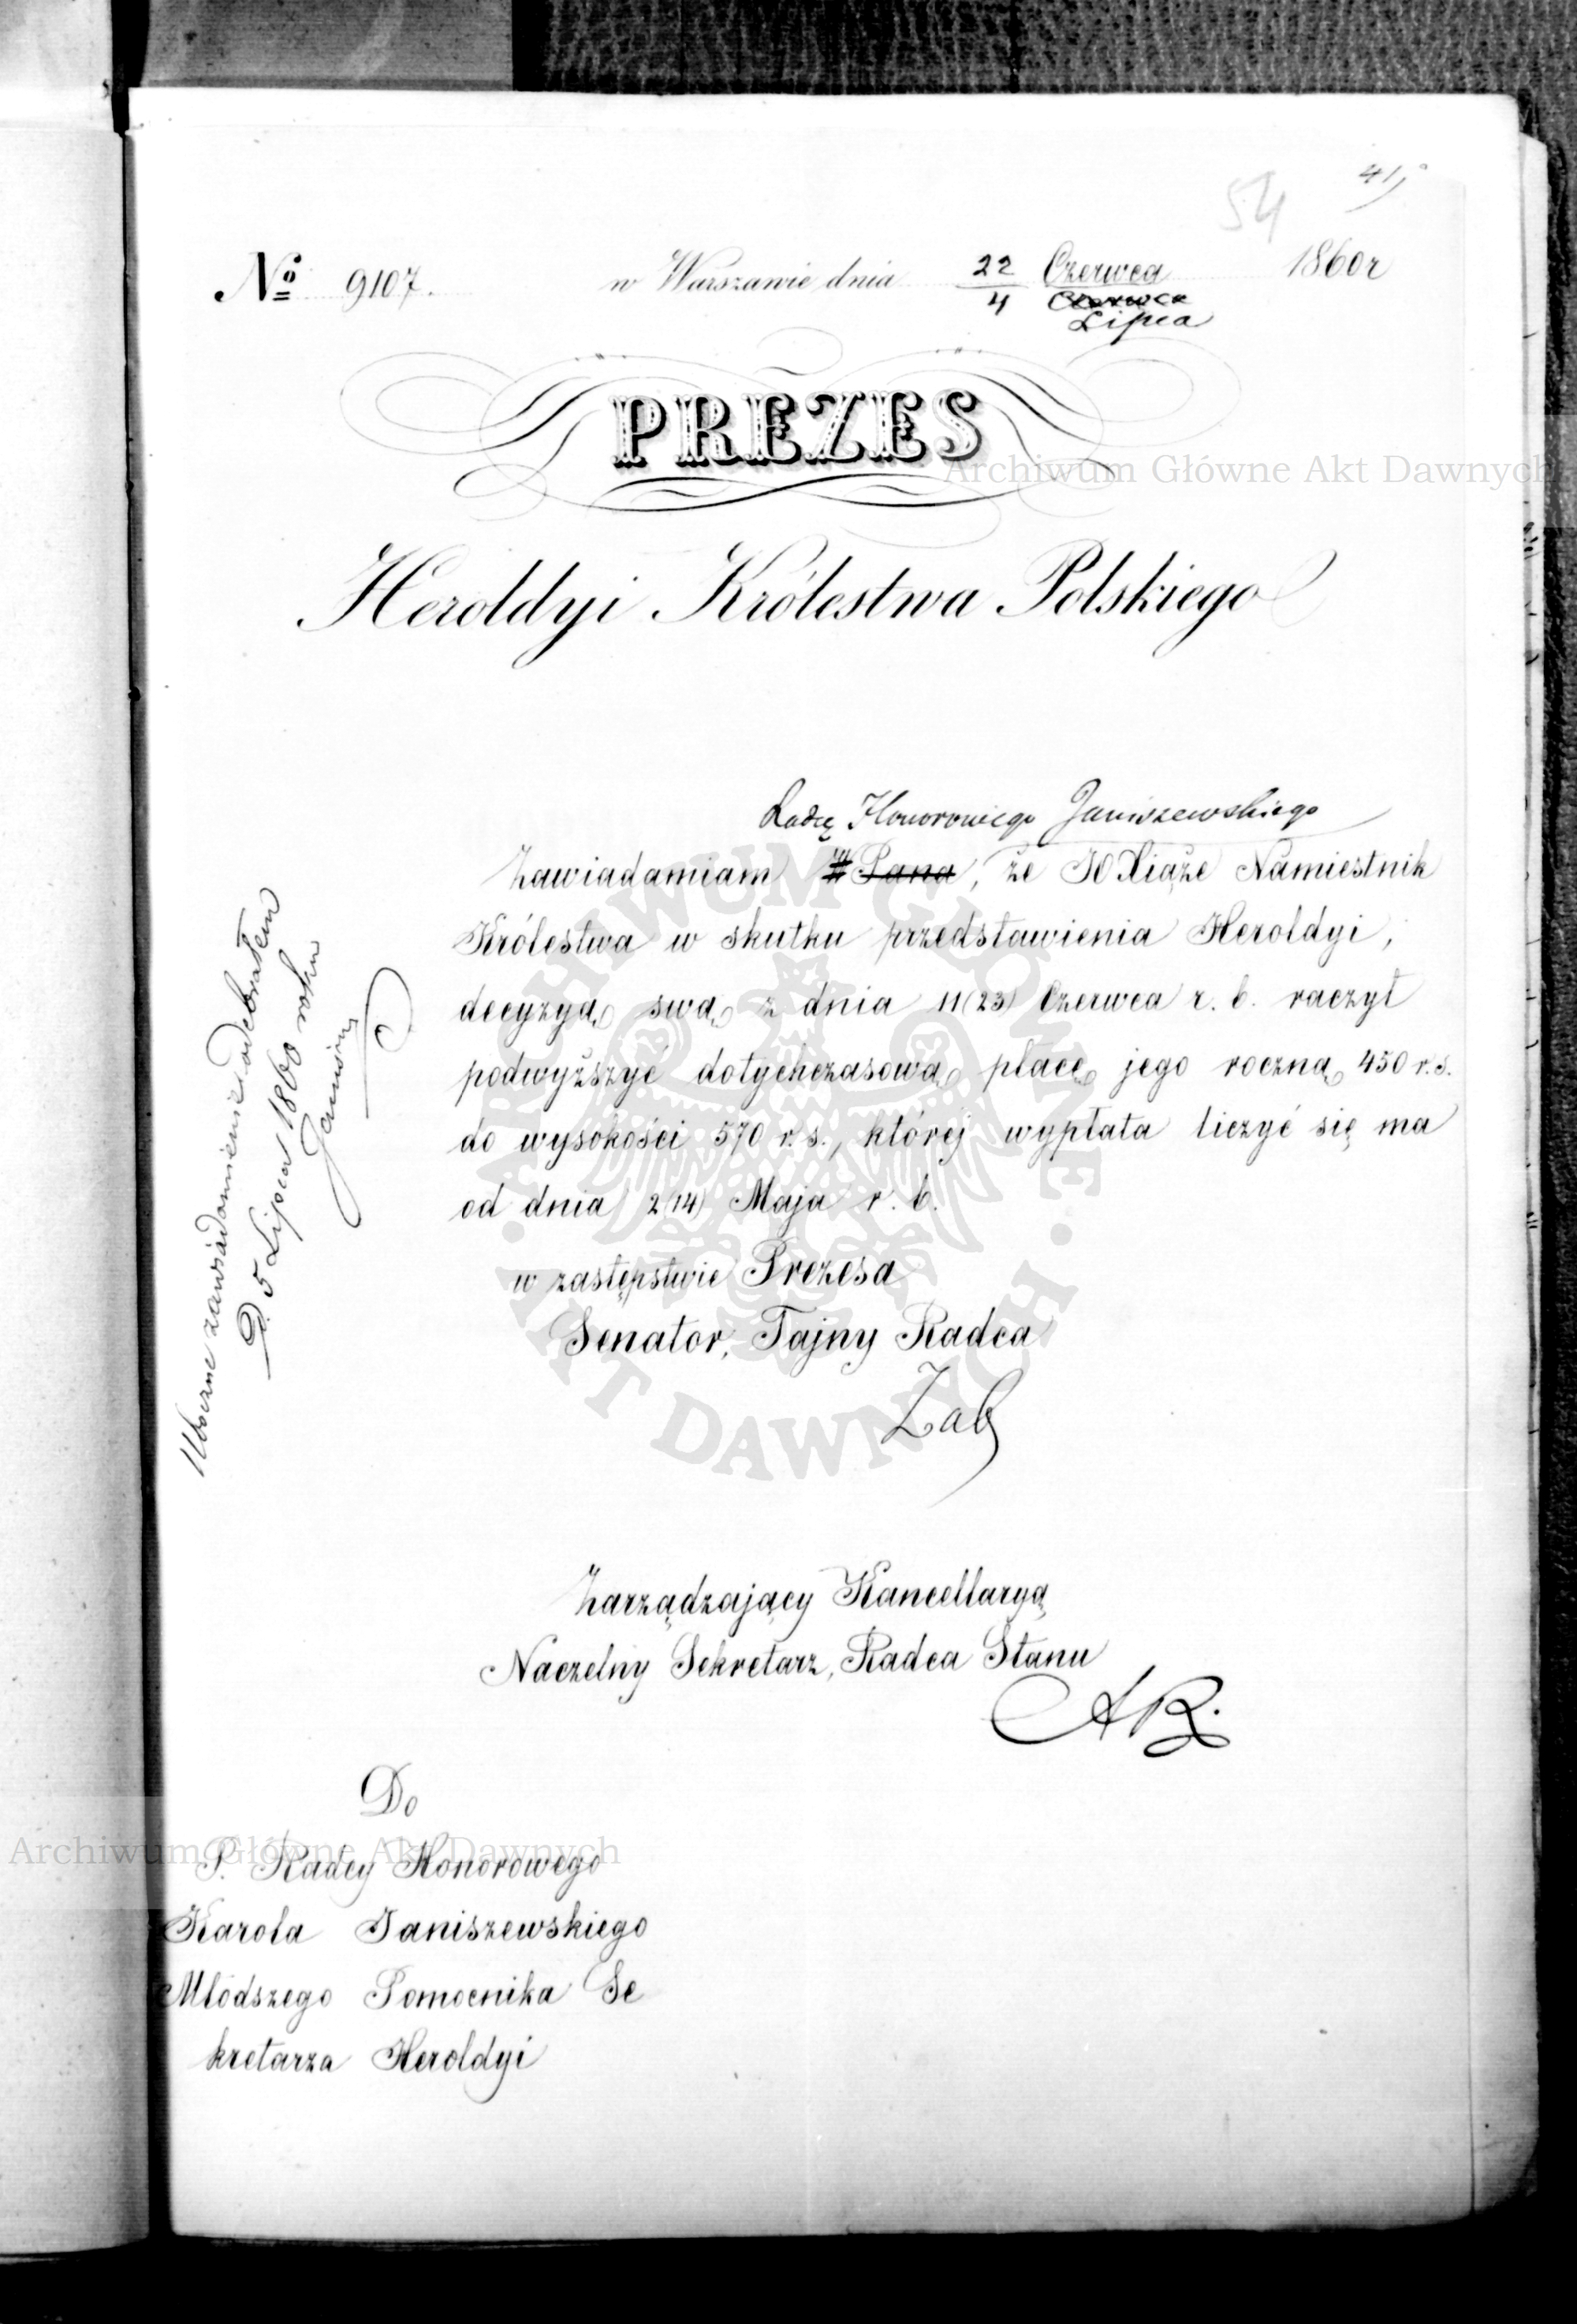 54 41
№ 9107. w Warszawie dnia 22 Czerwca 1860 r
4 Czerwca
Lipca
PREZES
Heroldyi Królestwa Polskiego
Radcę Honorowego Janiszewskiego
Zawiadamiam Pana, że JO Xiąże Namiestnik
Królestwa w skutku przedstawienia Heroldyi,
decyzyą swą z dnia 11(23) Czerwca r. b. raczył
podwyższyć dotychczasową płacę jego roczną 450 r.s.
do wysokości 570 r. s., której wypłata liczyć się ma
od dnia 2(14) Maja r. b.
w zastępstwie Prezesa
Senator, Tajny Radca
Zab
Zarządzający Kancellaryą
Naczelny Sekretarz, Radca Stanu
AR.
Do
P. Radcy Honorowego
Karola Janiszewskiego
Młodszego Pomocnika Se
kretarza Heroldyi
zawiadomienie odebrałem
D. 5 Lipca 1860 roku
Archiwum Główne Akt Dawnych
Archiwum Główne Akt Dawnych
ARCHIWUM GŁÓWNE AKT DAWNYCH